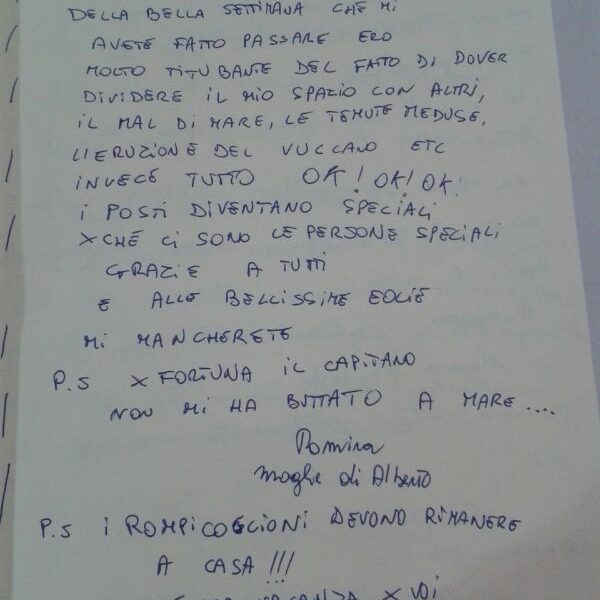 DELLA BELLA SETTIMANA CHE MI
AVETE FATTO PASSARE ERO
MOLTO TITUBANTE DEL FATTO DI DOVER
DIVIDERE IL MIO SPAZIO CON ALTRI,
IL MAL DI MARE, LE TEMUTE MEDUSE,
L'ERUZIONE DEL VULCANO ETC
INVECE TUTTO OK! OK! OK!
I POSTI DIVENTANO SPECIALI
XCHÉ CI SONO LE PERSONE SPEZIALI
GRAZIE A TUTTI
E ALLE BELLISSIME EOLIE
MI MANCHERETE
P.S X FORTUNA IL CAPITANO
NON MI HA BUTTATO A MARE ....
Romina
moglie di Alberto
P.S I ROMPICOGLIONI DEVONO RIMANERE
A CASA !!!
X VOI